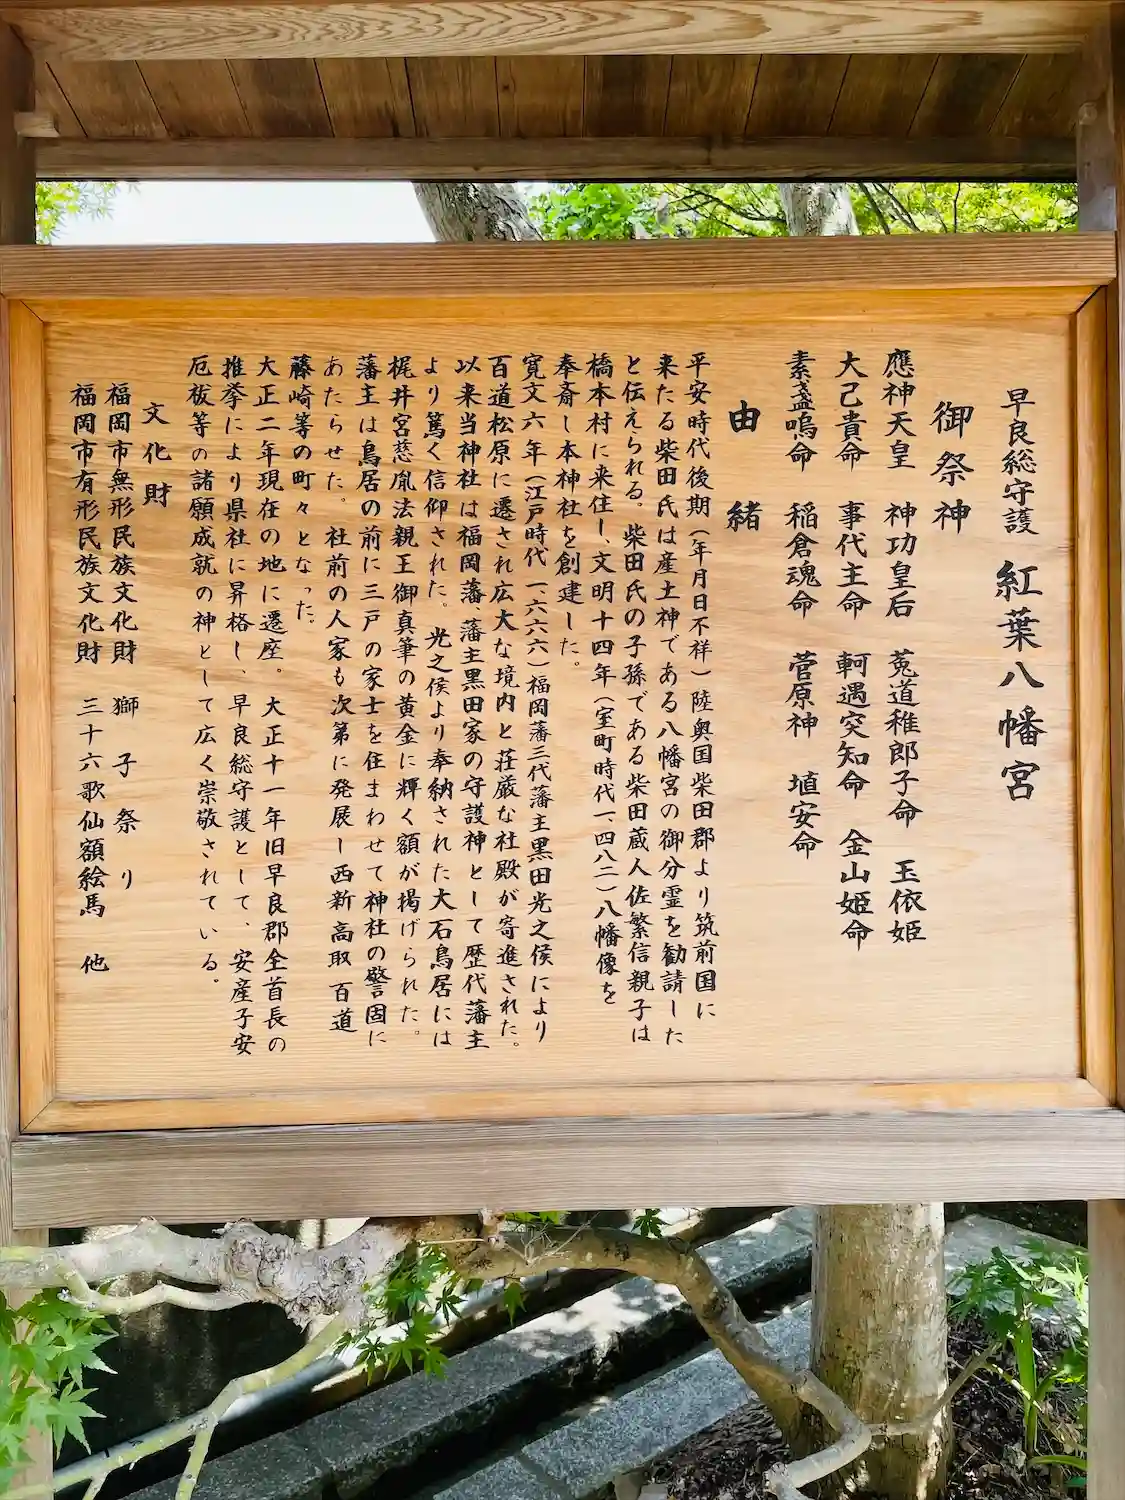 早良総守護 紅葉八幡宮
御祭神
應神天皇 神功皇后 菟道稚郎子命 玉依姫
大己貴命 事代主命 軻遇突知命 金山姫命
素盞嗚命 稲倉魂命 菅原神 埴安命
由緒
平安時代後期(年月日不祥)陸奥国柴田郡より筑前国に
来たる柴田氏は産土神である八幡宮の御分霊を勧請した
と伝えられる。柴田氏の子孫である柴田蔵人佐繁信親子は
橋本村に来住し、文明十四年(室町時代一、四八二)八幡像を
奉斎し本神社を創建した。
寛文六年(江戸時代一、六六六)福岡藩三代藩主黒田光之侯により
百道松原に遷され広大な境内と荘厳な社殿が寄進された。
以来当神社は福岡藩、藩主黒田家の守護神として歴代藩主
より篤く信仰された。光之侯より奉納された大石鳥居には
梶井宮慈胤法親王御真筆の黄金に輝く額が掲げられた。
藩主は鳥居の前に三戸の家士を住まわせて神社の警固に
あたらせた。社前の人家も次第に発展し西新高取百道
藤崎等の町々となった。
大正二年現在の地に遷座。大正十一年旧早良郡全首長の
推挙により県社に昇格し、早良総守護として、安産子安
厄祓等の諸願成就の神として広く崇敬されている。
文化財
福岡市無形民族文化財 獅子祭り
福岡市有形民族文化財 三十六歌仙額絵馬 他